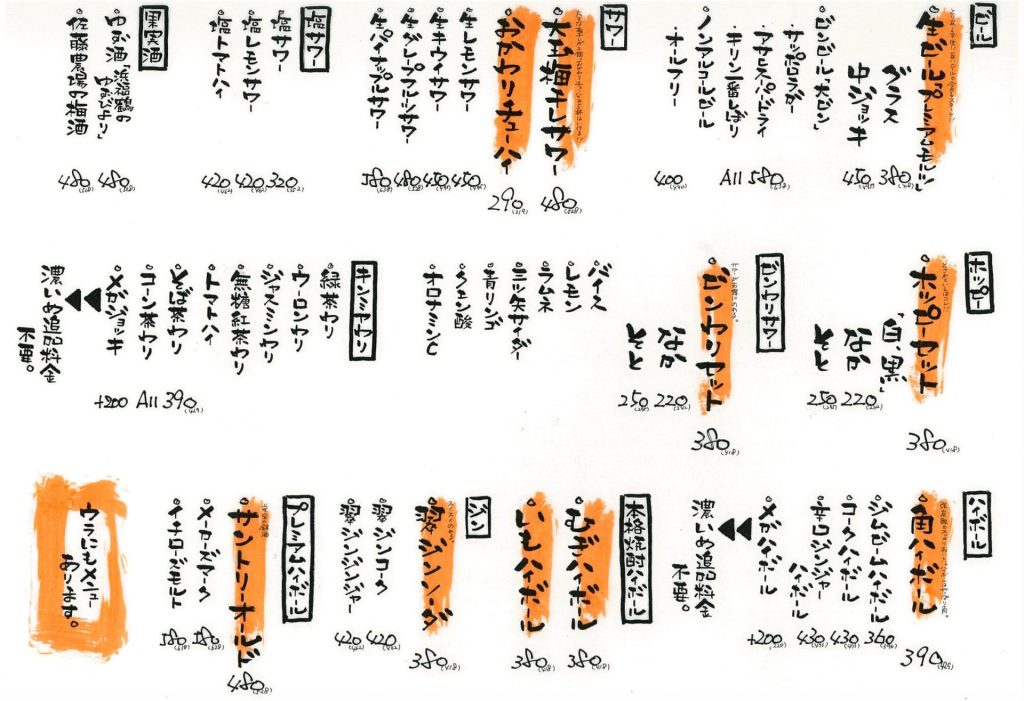 ビール
生ビール「プレミアムモルツ」
グラス 380
中ジョッキ 450
ビンビール「大ビン」
・サッポロラガー
・アサヒスーパードライ
・キリン一番しぼり
All 580
ノンアルコールビール
・オールフリー 400
サワー
大玉梅干しサワー 480
おかわりチューハイ 290
生レモンサワー 450
生キウイサワー 450
生グレープフルーツサワー 480
生パイナップルサワー 580
塩サワー
塩サワー 320
塩レモンサワー 420
塩トマトハイ 420
果実酒
ゆず酒「浜福鶴のゆずびより」 480
佐藤農場の梅酒 480
ホッピー
ホッピーセット 380
「白、黒」
なか 220
そと 250
ビンワリサワー
ビンワリセット 380
なか 220
そと 250
バイス
レモン
ラムネ
三ツ矢サイダー
青リンゴ
クエン酸
オロナミンC
キンミヤワリ
緑茶ワリ
ウーロンワリ
ジャスミンワリ
無糖紅茶ワリ
トマトハイ
そば茶ワリ
コーン茶ワリ
All 390
メガジョッキ +200
濃いめ追加料金
不要。
ハイボール
角ハイボール 390
ジムビームハイボール 360
コークハイボール 430
辛口ジンジャーハイボール 430
メガハイボール +200
濃いめ追加料金
不要。
本格焼酎ハイボール
むぎハイボール 380
いもハイボール 380
ジン
翠ジンソーダ 380
翠ジンコーク 420
翠ジンジンジャー 420
プレミアムハイボール
サントリーオールド 480
メーカーズマーク 580
イチローズモルト 580
ウラにもメニュー
あります。